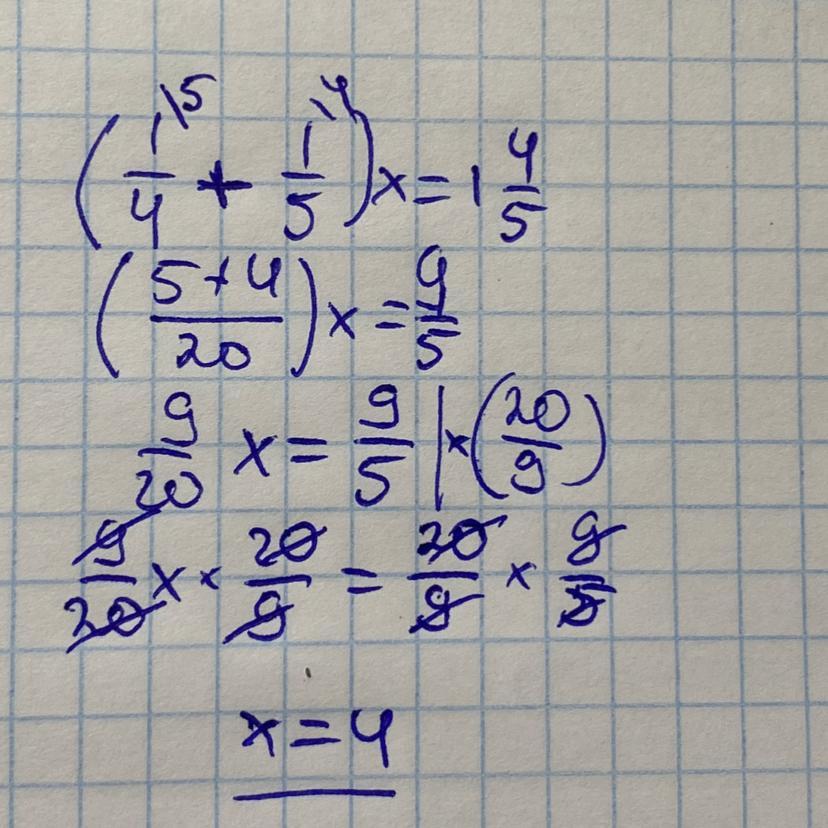 (1\5/4 + 1\4/5)x = 1 4/5
((5+4)/20)x = 9/5
9/20 x = 9/5 | × (20/9)
9/20 x × 20/9 = 20/9 × 9/5
x = 4